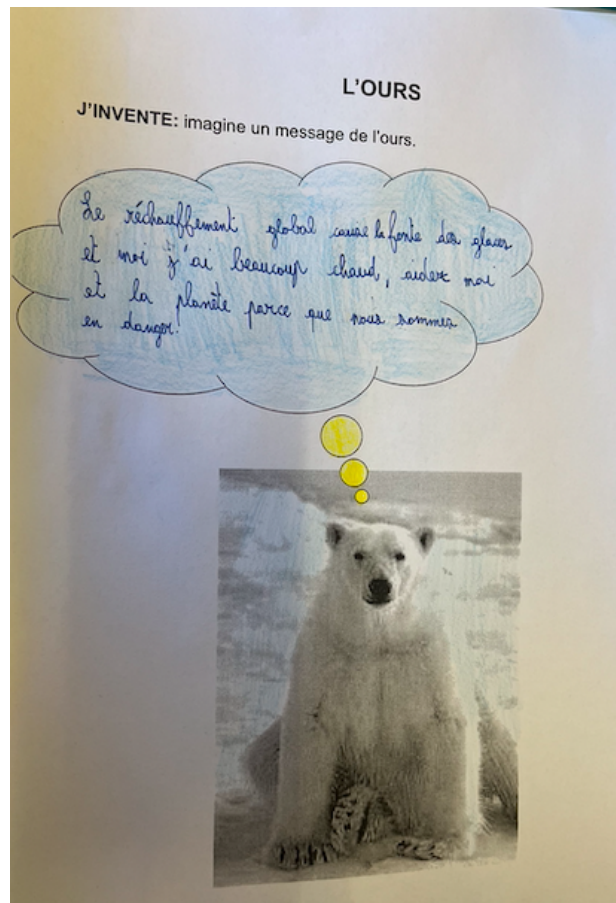 L'OURS
J'INVENTE: imagine un message de l'ours.
Le réchauffement global cause la fonte des glaces
et moi j'ai beaucoup chaud, aidez moi
et la planète parce que nous sommes
en danger!